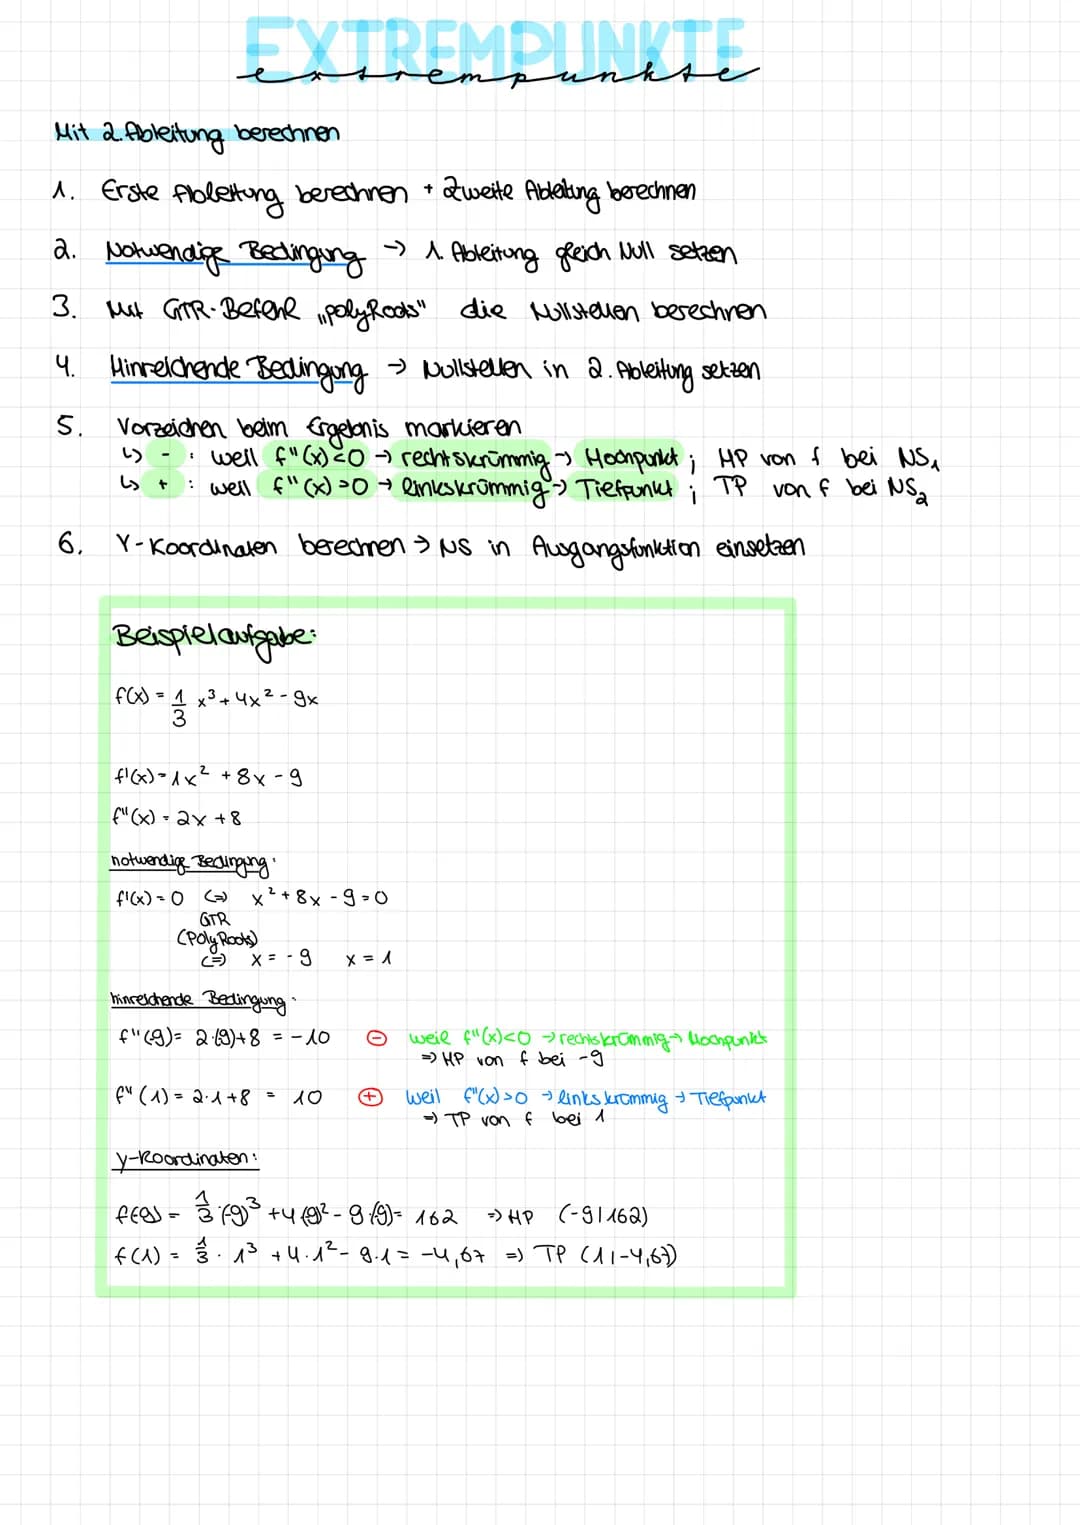 EXTREMPUNKTE
extrempunkte
Mit 2. Ableitung berechnen
1. Erste Ableitung berechnen + Zweite Ableitung berechnen
2. Notwendige Bedingung → 1. Ableitung gleich Null setzen
3. Mit GTR-Befehl „polyRoots" die Nullstellen berechnen
4. Hinreichende Bedingung → Nullstellen in 2. Ableitung setzen
5. Vorzeichen beim Ergebnis markieren
↳ - : weil f''(x)<0 → rechtskrümmig → Hochpunkt ; HP von f bei NS₁
↳ + : weil f''(x)>0 → linkskrümmig → Tiefpunkt ; TP von f bei NS₂
6. Y-Koordinaten berechnen → NS in Ausgangsfunktion einsetzen
Beispielaufgabe:
f(x) = 1/3 x³ + 4x² - 9x
f'(x) = 1x² + 8x - 9
f''(x) = 2x + 8
notwendige Bedingung:
f'(x) = 0 <=> x² + 8x - 9 = 0
GTR
(PolyRoots)
<=> x = -9 x = 1
hinreichende Bedingung:
f''(-9) = 2·(-9)+8 = -10 ⊖ weil f''(x)<0 → rechtskrümmig → Hochpunkt
=> HP von f bei -9
f''(1) = 2·1+8 = 10 ⊕ weil f''(x)>0 → linkskrümmig → Tiefpunkt
=> TP von f bei 1
y-Koordinaten:
f(-9) = 1/3·(-9)³ + 4·(-9)² - 9·(-9) = 162 => HP (-9|162)
f(1) = 1/3 · 1³ + 4·1² - 9·1 = -4,67 => TP (1|-4,67)